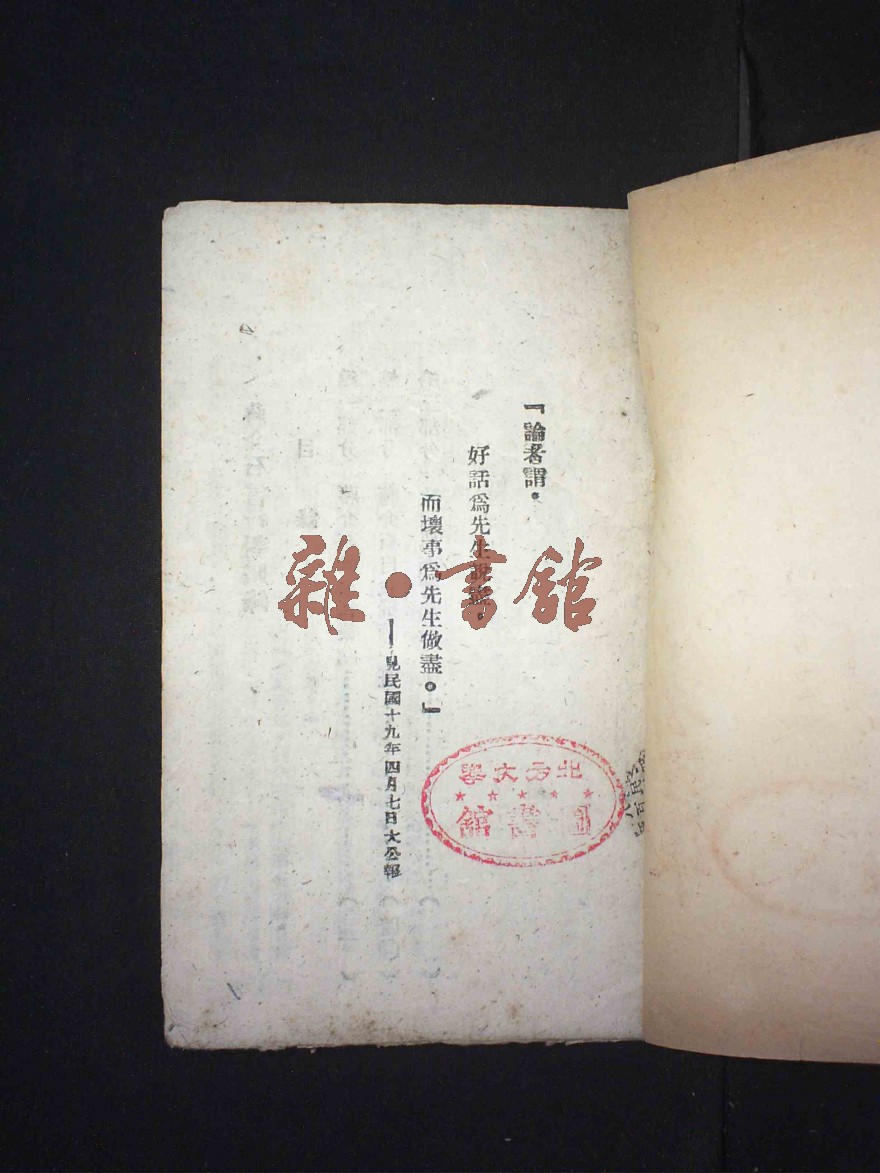 『論者謂。
好話爲先生說盡。
而壞事爲先生做盡。』
——見民國十九年四月七日大公報
北方大學
圖書館
雜·書館